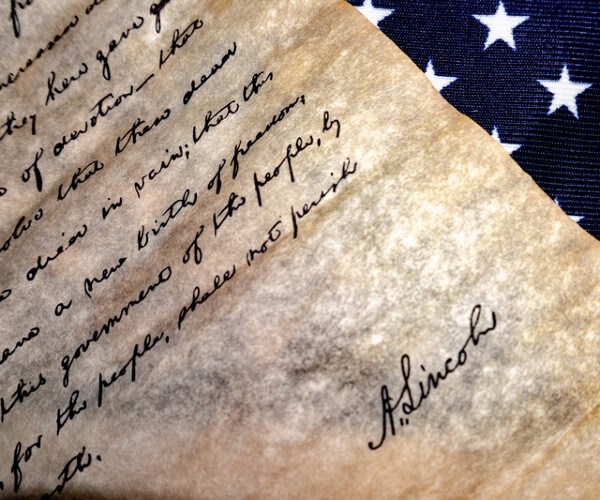 ncreased
they here gave
of devotion—that
solve that these dead
died in vain; that this
ave a new birth of freedom;
this government of the people, by
, for the people, shall not perish
arth.
A. Lincoln